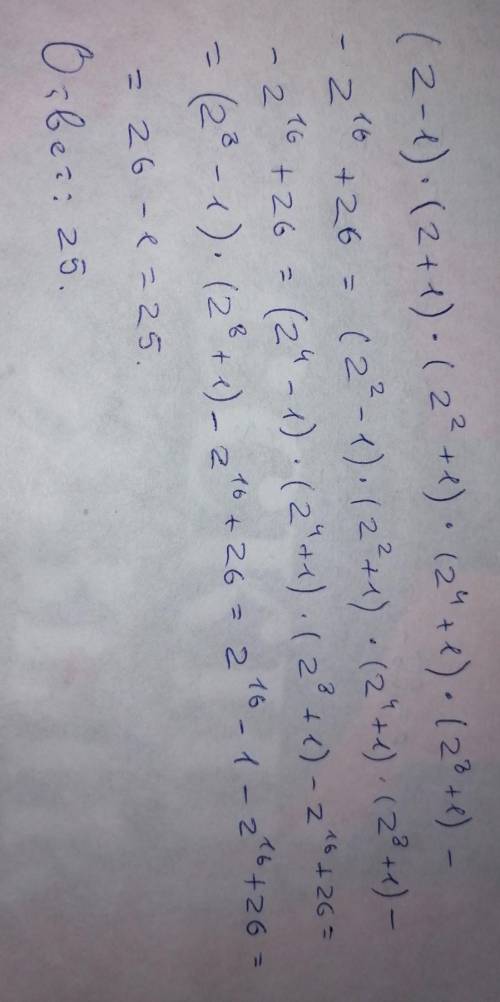 (2-1)·(2+1)·(2²+1)·(2⁴+1)·(2⁸+1)-
-2¹⁶+26=(2²-1)·(2²+1)·(2⁴+1)·(2⁸+1)-
-2¹⁶+26=(2⁴-1)·(2⁴+1)·(2⁸+1)-2¹⁶+26=
=(2⁸-1)·(2⁸+1)-2¹⁶+26=2¹⁶-1-2¹⁶+26=
=26-1=25.
Ответ: 25.